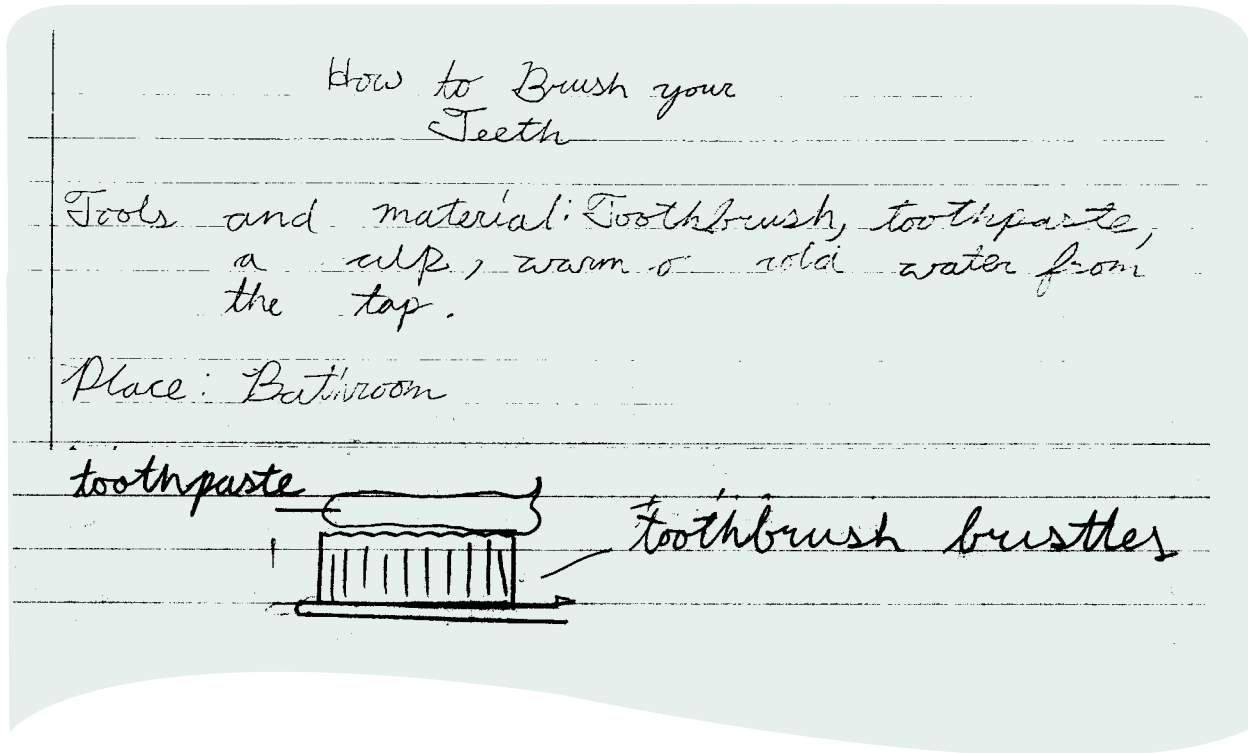 How to Brush your
Teeth
Tools and material: Toothbrush, toothpaste,
a cup, warm o cold water from
the tap.
Place: Bathroom
toothpaste
toothbrush brusttes